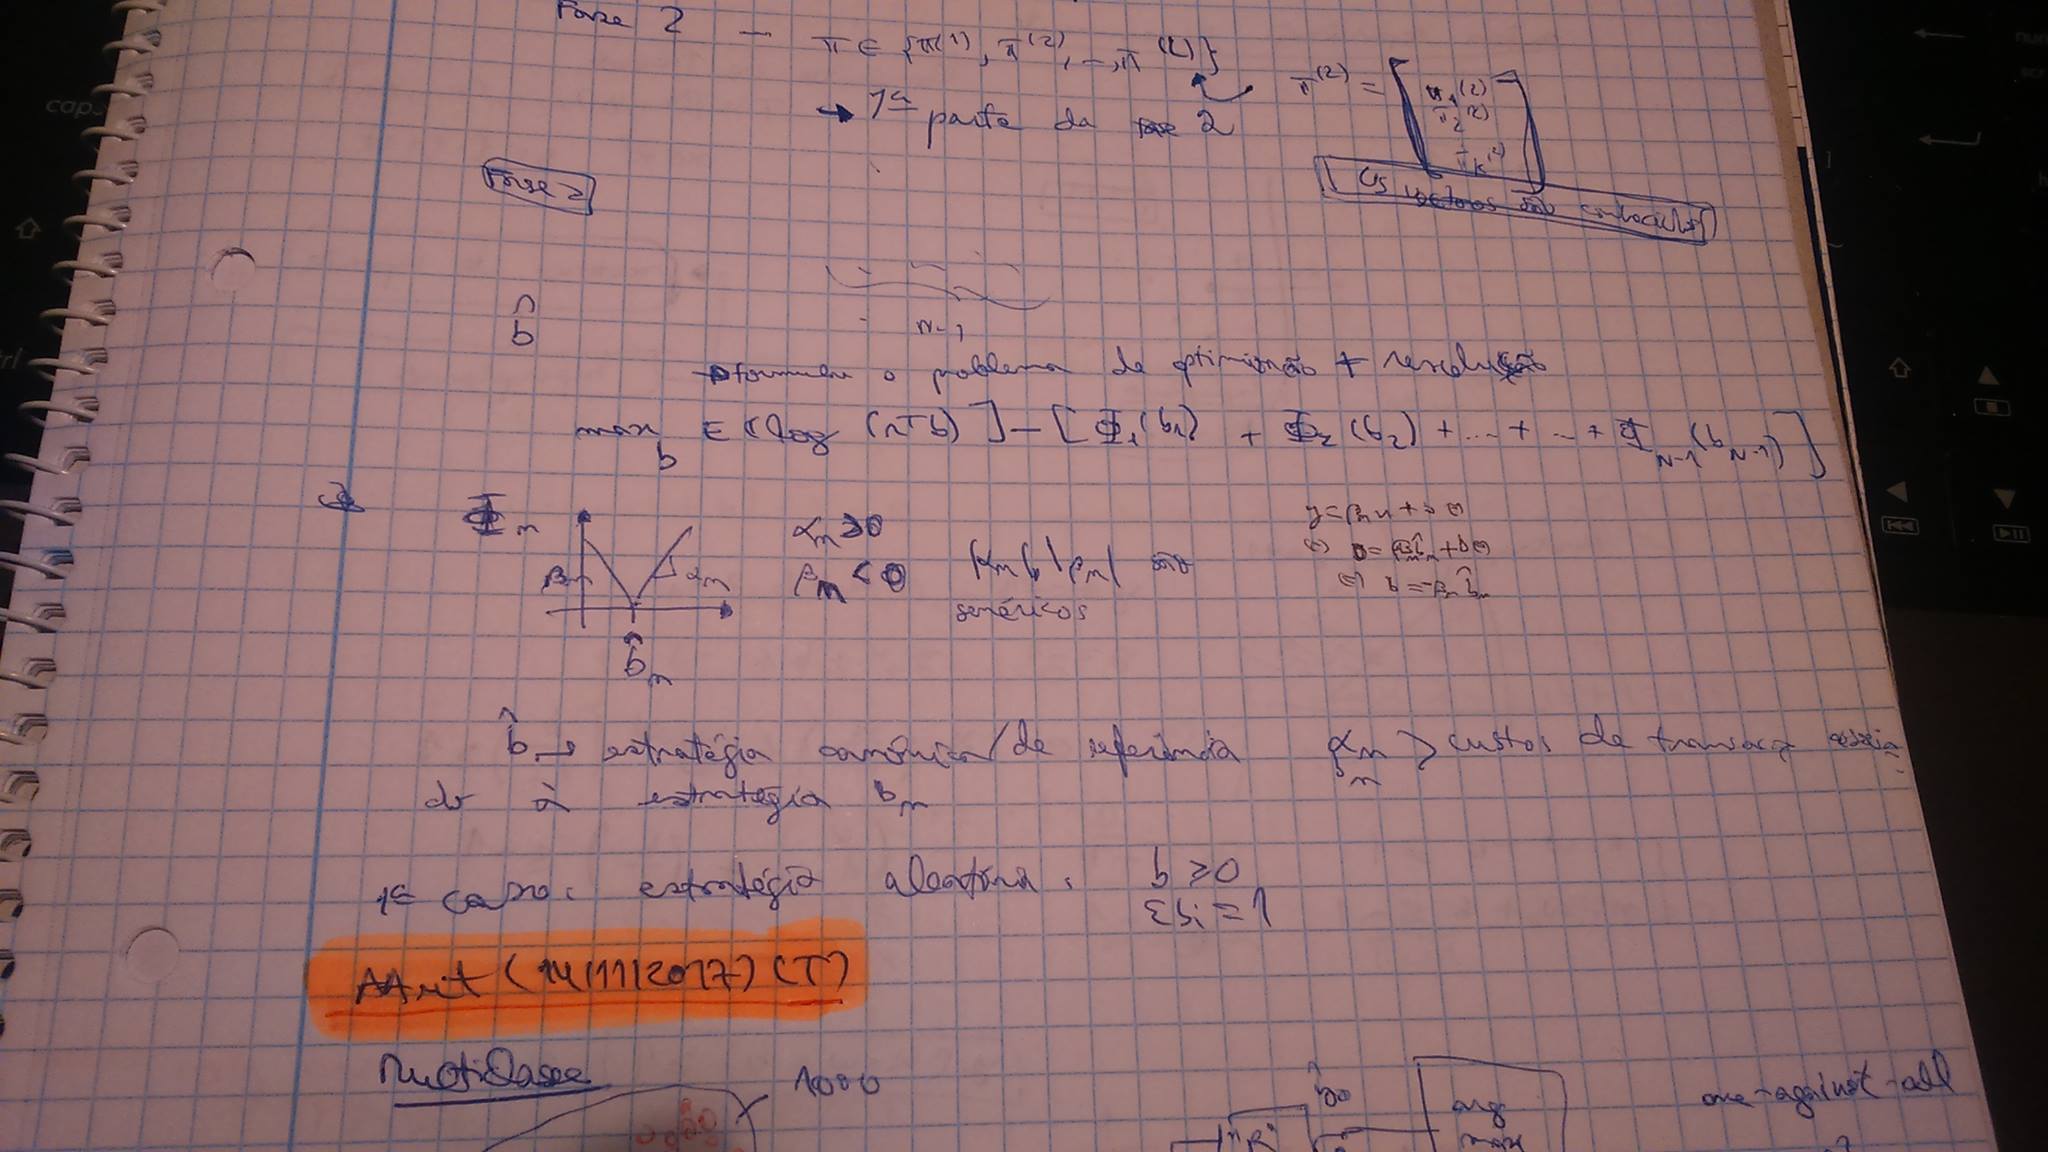 Fase 2 — π ∈ {π(1), π(2), ..., π(L)}
π(2) = [π1(2) π2(2) ... πK(2)]
→ 1ª parte da fase 2
Fase 2
Os vectores são conhecidos
N-1
b̂
→ formular o problema de optimização + resolução
max b E[log(rTb)] - [Φ1(b1) + Φ2(b2) + ... + ... + ΦN-1(bN-1)]
Φn
αn ≥ 0
βn < 0
|αn| |βn| são
genéricos
βn
αn
b̂n
y = βn x + b ⇔
⇔ 0 = βn b̂n + b ⇔
⇔ b = -βn b̂n
b̂ → estratégia canónica/de referência
αn βn > custos de transacç associa-
do à estratégia bn
1º caso: estratégia aleatória:
b ≥ 0
Σbi = 1
AAut (14/11/2017) (T)
Multiclasse
1000
"R"
arg
max
one-against-all